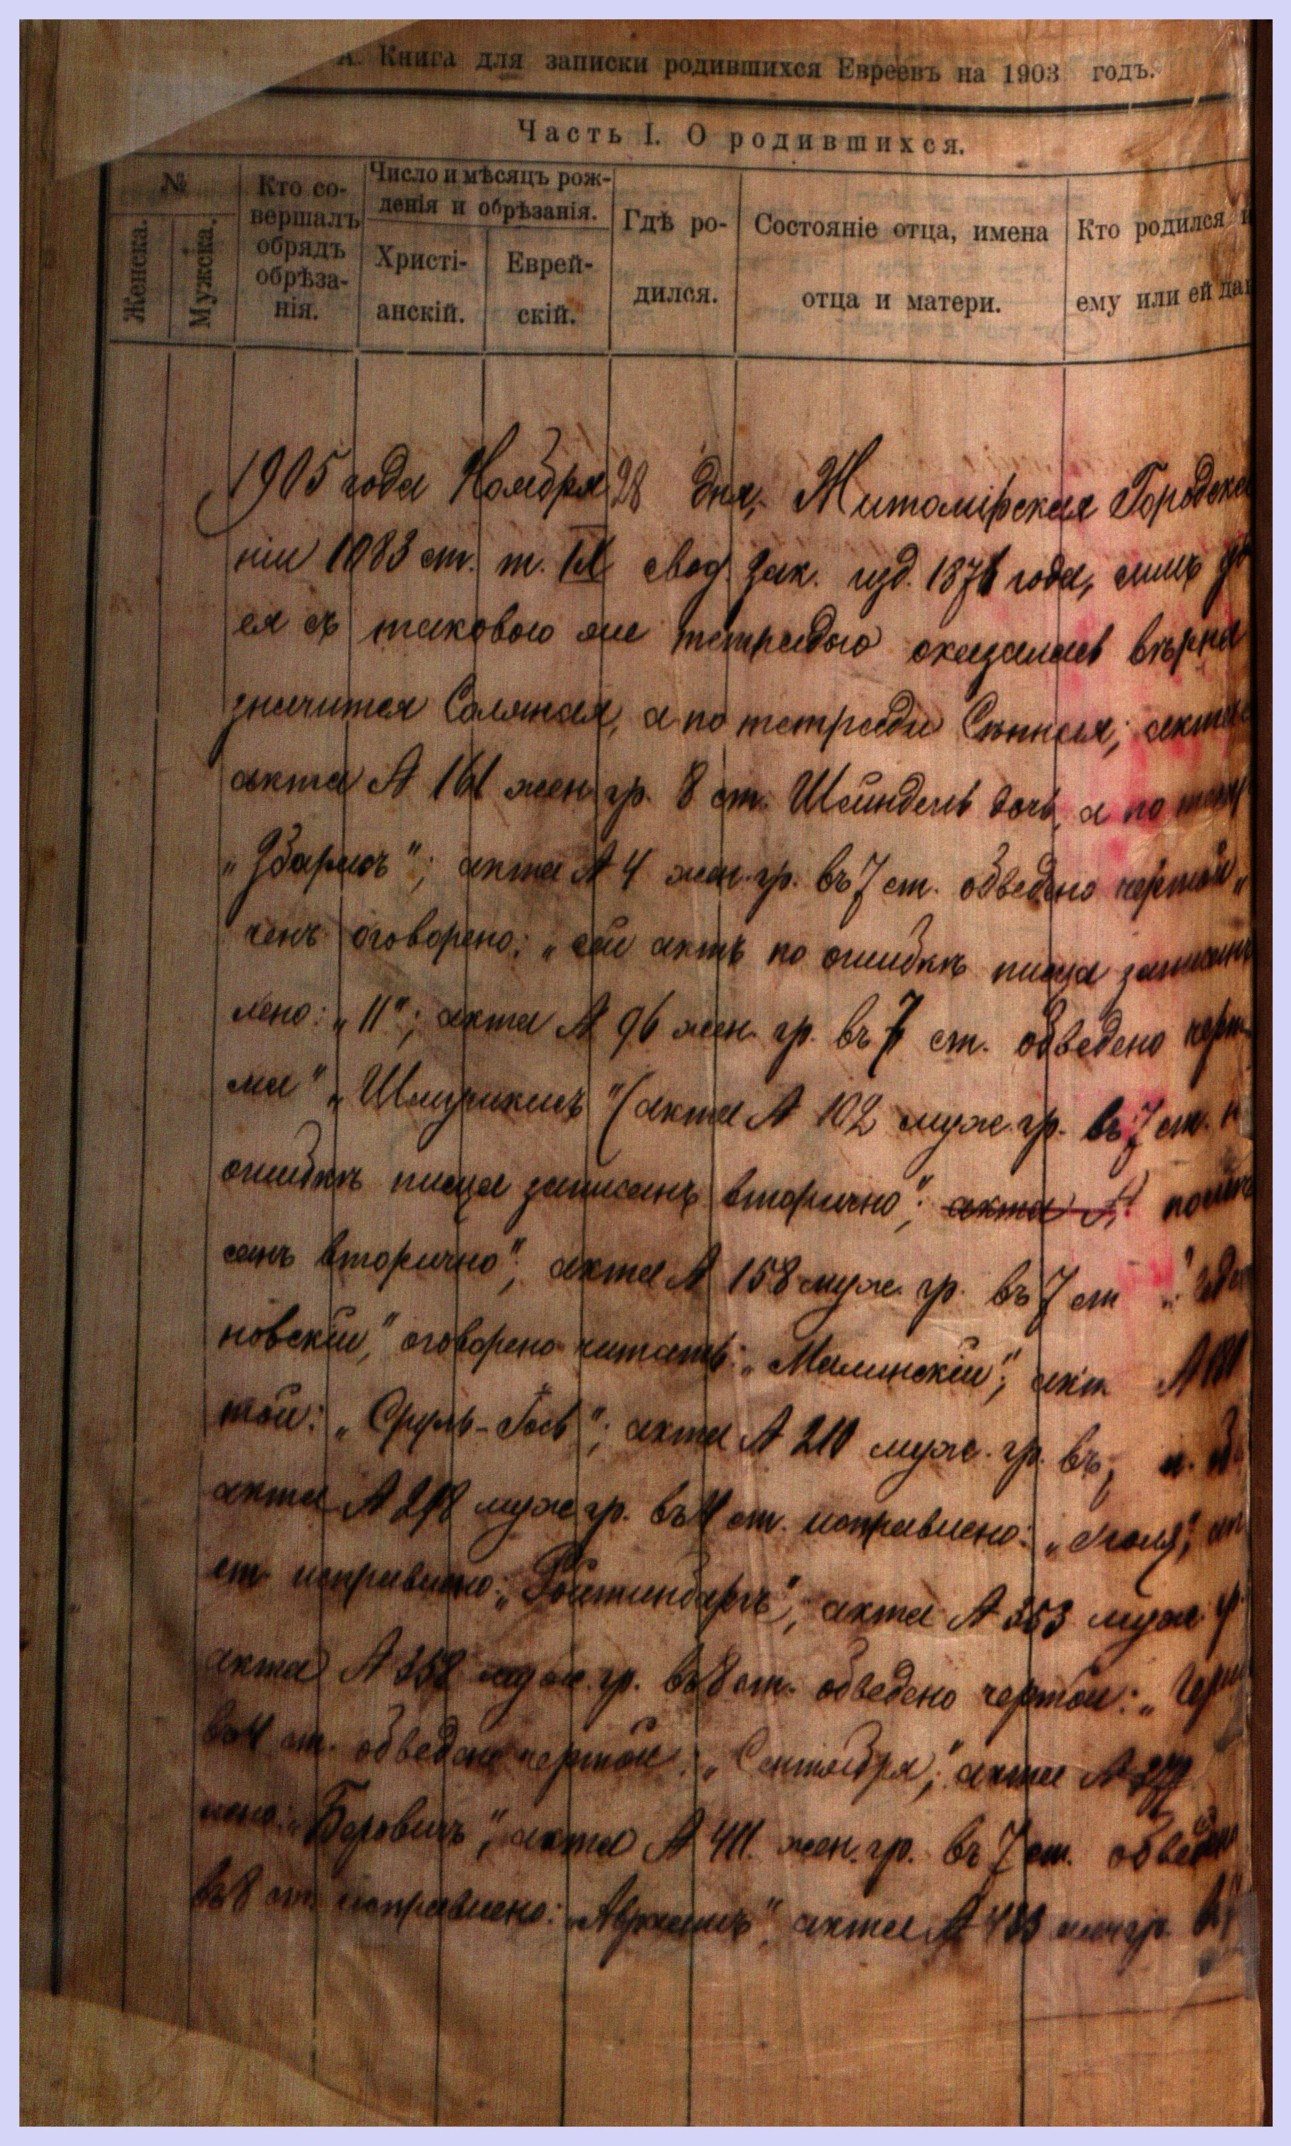 А. Книга для записки родившихся Евреевъ на 1903 годъ.
Часть I. О родившихся.
№
Женска.
Мужска.
Кто со-
вершалъ
обрядъ
обрѣза-
нія.
Число и мѣсяцъ рож-
денія и обрѣзанія.
Христі-
анскій.
Еврей-
скій.
Гдѣ ро-
дился.
Состояніе отца, имена
отца и матери.
Кто родился и
ему или ей дан
1905 года Ноября 28 дня, Житомірская Городска
ніи 1083 ст. т. IX свод. зак. изд. 1876 года, сихъ
ея съ таковою же тетрадью оказалась вѣрна
значится Соляная, а по тетради Сѣнная; акта
акта № 161 жен. гр. 8 ст. Шейндель дочь, а по тетр
„Збарисъ"; акта № 4 жен. гр. въ 7 ст. обведено чертой „
ченъ оговорено: „сей актъ по ошибкѣ писца записанъ
лено: „11"; акта № 96 жен. гр. въ 7 ст. обведено черт
ма" „Шлузикисъ" (акта № 102 муж. гр. въ 7 ст. н
ошибкѣ писца записанъ вторично"; акта № по
санъ вторично"; акта № 158 муж. гр. въ 7 ст
новскій," оговорено читать: „Малинскій"; акт №
той: „Сруль-Іось"; акта № 210 муж. гр. въ
акта № 298 муж. гр. въ 4 ст. исправлено:
ст исправлено: „Ройтинбаргъ"; акта № 353 муж. гр.
акта № 358 муж. гр. въ 8 ст. обведено чертой:
въ 4 ст. обведено чертой: „Сентября"; акта №
лено: „Беровичъ"; акта № 411. жен. гр. въ 7 ст. обведено
въ 8 ст. исправлено: „Авраамъ", акта № 433 гр.